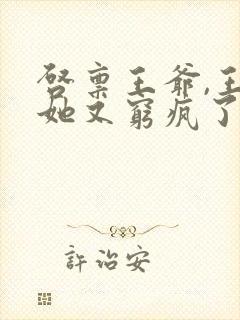 啓稟王爺,王
她又窮瘋了
許治安